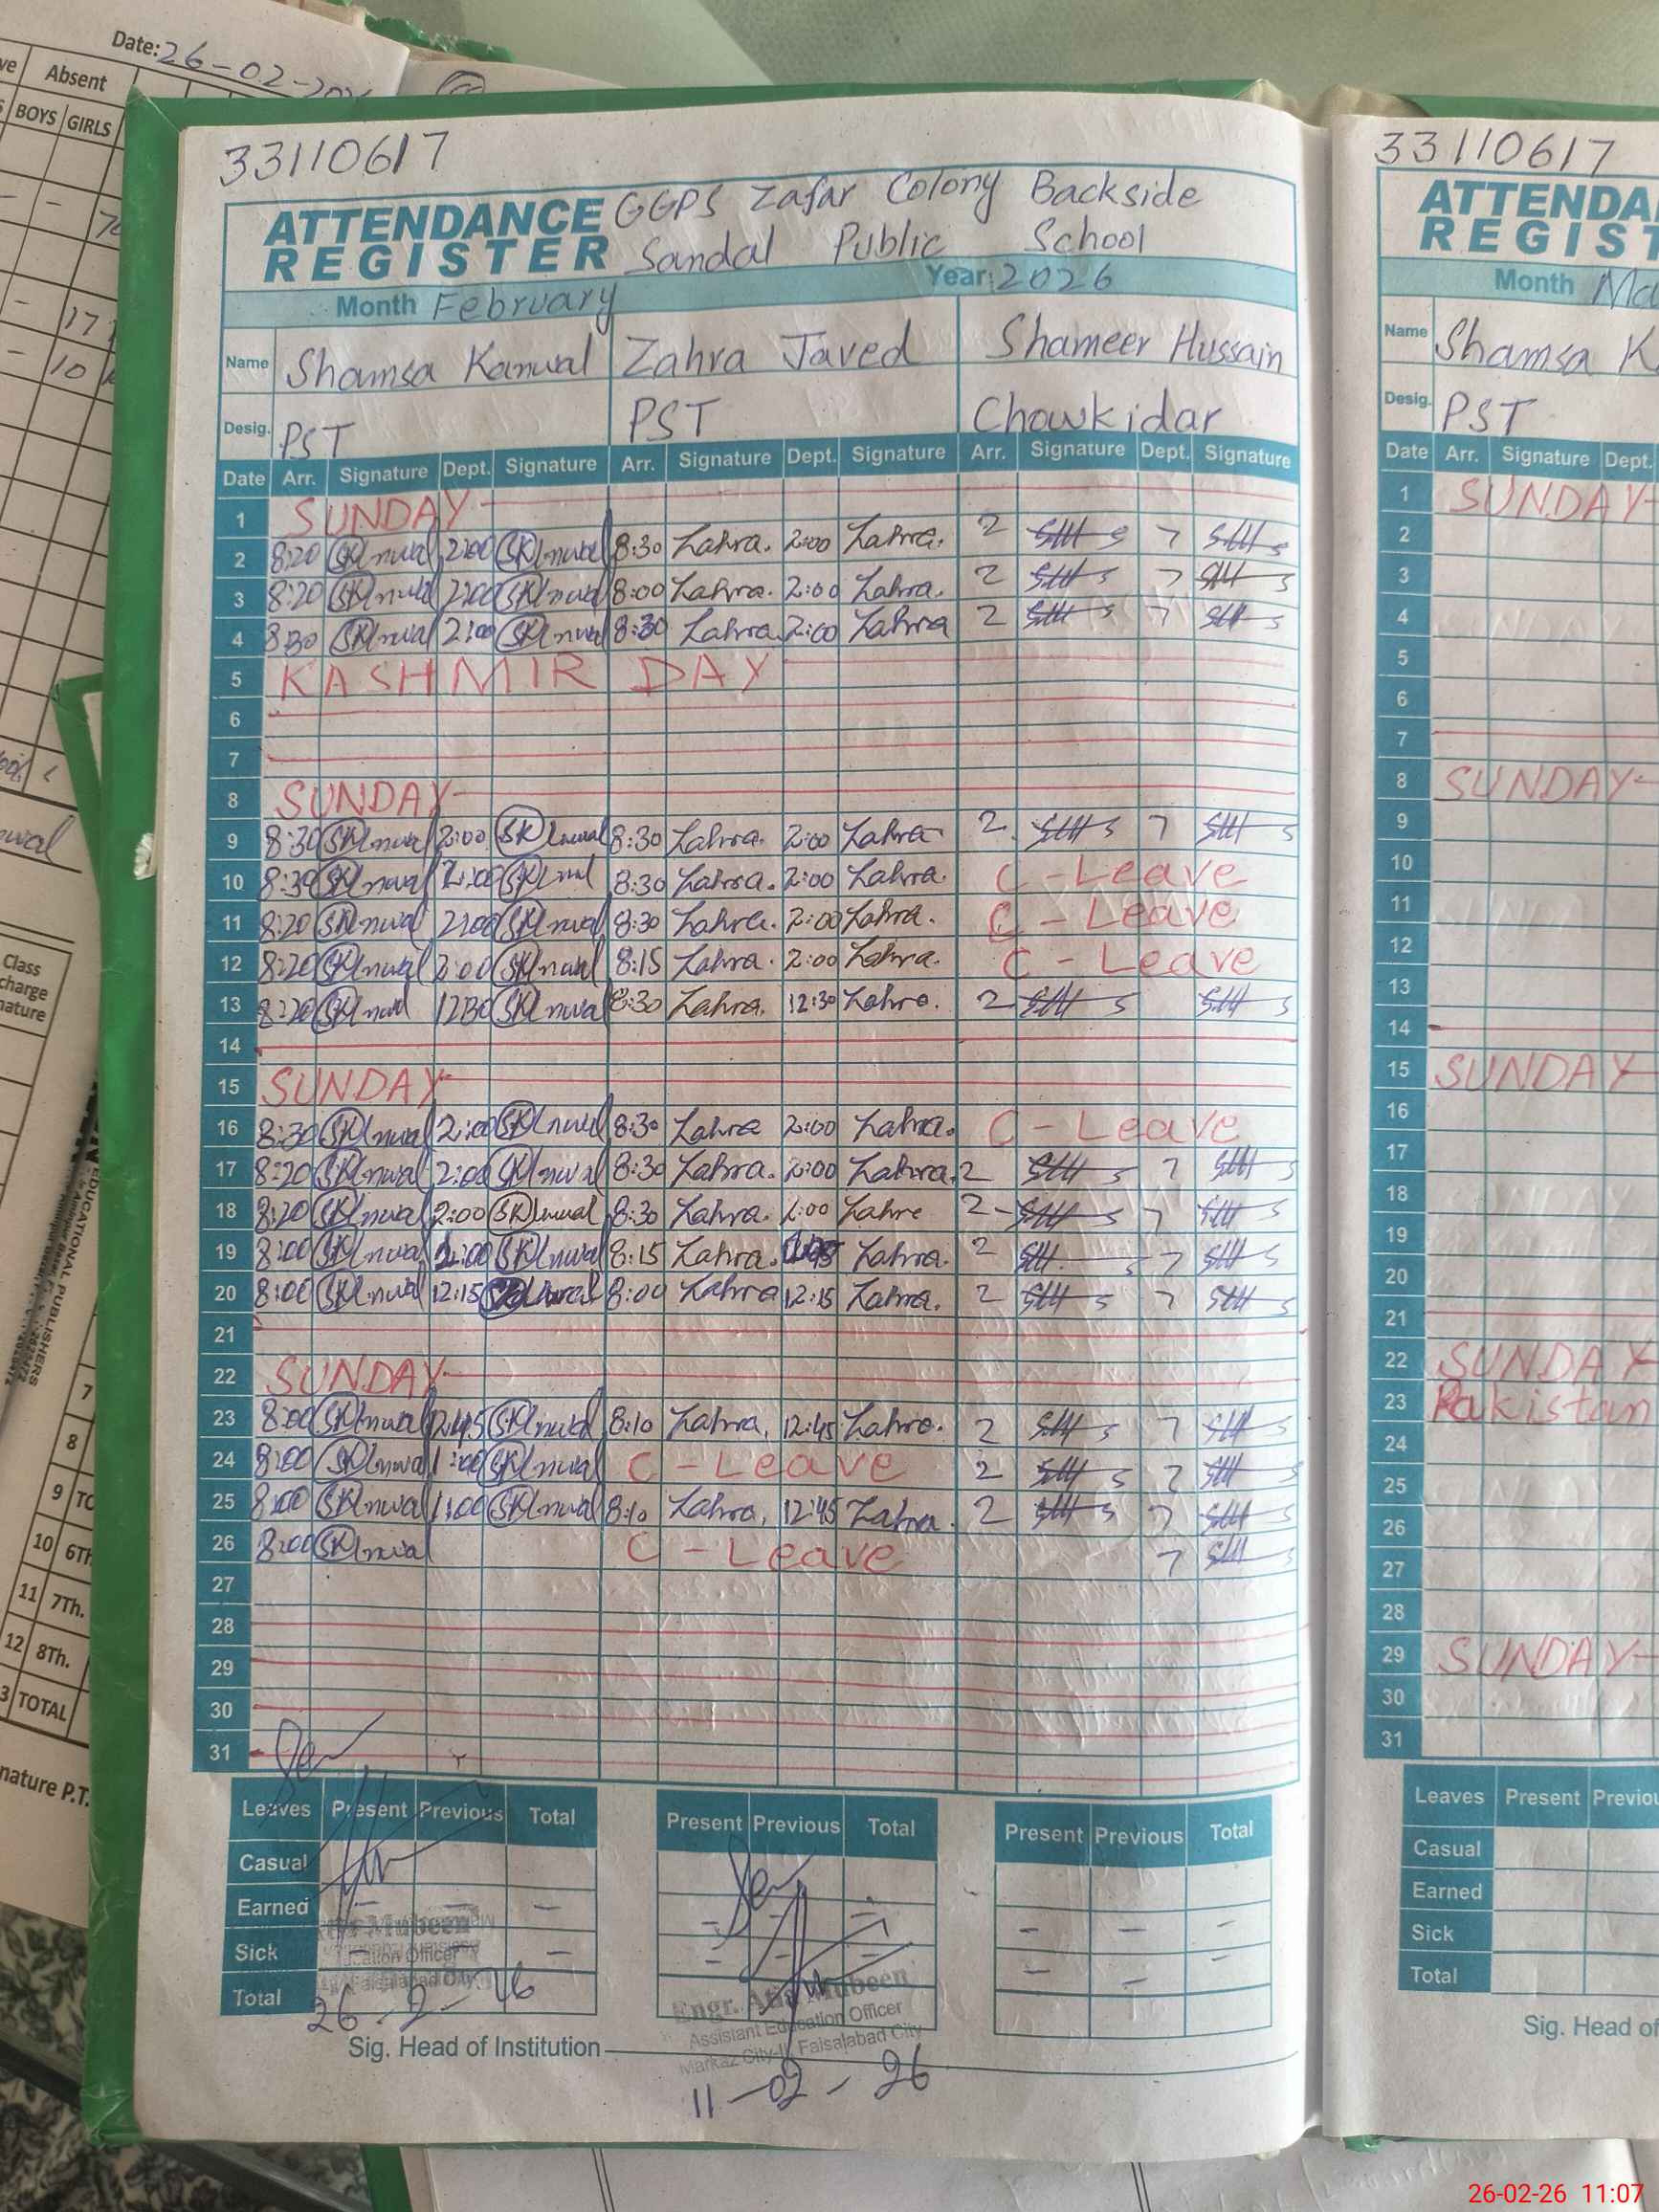 Date: 26-02-
ve Absent
BOYS GIRLS
17
10
Class
charge
nature
7
8
9 TO
10 6Th
11 7Th.
12 8Th.
3 TOTAL
nature P.T.
EDUCATIONAL PUBLISHERS
33110617
ATTENDANCE REGISTER GGPS Zafar Colony Backside
Sandal Public School
Month February Year: 2026
Name Shamsa Kanwal Zahra Javed Shameer Hussain
Desig. PST PST Chowkidar
Date Arr. Signature Dept. Signature Arr. Signature Dept. Signature Arr. Signature Dept. Signature
1 SUNDAY
2 8:20 SKnwal 2:00 SKnwal 8:30 Zahra. 2:00 Zahra. 2 7
3 8:20 SKnwal 2:00 SKnwal 8:00 Zahra. 2:00 Zahra. 2 7
4 8:30 SKnwal 2:00 SKnwal 8:30 Zahra. 2:00 Zahra 2 7
5 KASHMIR DAY
6
7
8 SUNDAY
9 8:30 SKnwal 2:00 SKnwal 8:30 Zahra. 2:00 Zahra 2 7
10 8:30 SKnwal 2:00 SKnwal 8:30 Zahra. 2:00 Zahra. C-Leave
11 8:20 SKnwal 2:00 SKnwal 8:30 Zahra. 2:00 Zahra. C-Leave
12 8:20 SKnwal 2:00 SKnwal 8:15 Zahra. 2:00 Zahra. C-Leave
13 8:20 SKnwal 12:30 SKnwal 8:30 Zahra. 12:30 Zahra. 2
14
15 SUNDAY
16 8:30 SKnwal 2:00 SKnwal 8:30 Zahra 2:00 Zahra. C-Leave
17 8:20 SKnwal 2:00 SKnwal 8:30 Zahra. 2:00 Zahra. 2 7
18 8:20 SKnwal 2:00 SKnwal 8:30 Zahra. 2:00 Zahra 2 7
19 8:00 SKnwal 2:00 SKnwal 8:15 Zahra. Zahra. 2 7
20 8:00 SKnwal 12:15 8:00 Zahra 12:15 Zahra. 2 7
21
22 SUNDAY
23 8:00 SKnwal 12:45 SKnwal 8:10 Zahra. 12:45 Zahra. 2 7
24 8:00 SKnwal 1:00 SKnwal C-Leave 2 7
25 8:00 SKnwal 1:00 SKnwal 8:10 Zahra. 12:45 Zahra. 2 7
26 8:00 SKnwal C-Leave 7
27
28
29
30
31
Leaves Present Previous Total Present Previous Total Present Previous Total
Casual
Earned
Sick
Total
26-2-26
Sig. Head of Institution
Engr. Atia Mubeen
Assistant Education Officer
Markaz City-II Faisalabad City
11-02-26
33110617
ATTENDA
REGIST
Month Ma
Name Shamsa K
Desig. PST
Date Arr. Signature Dept.
1 SUNDAY
2
3
4
5
6
7
8 SUNDAY
9
10
11
12
13
14
15 SUNDAY
16
17
18
19
20
21
22 SUNDAY
23 Pakistan
24
25
26
27
28
29 SUNDAY
30
31
Leaves Present Previou
Casual
Earned
Sick
Total
Sig. Head of
26-02-26 11:07